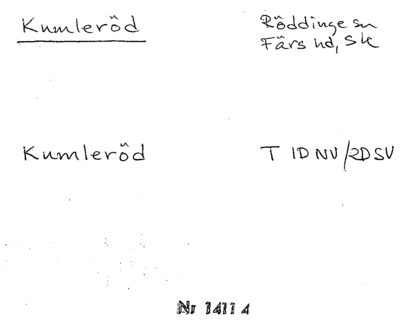 Kumleröd
Röddinge sn
Färs hd, Sk
Kumleröd
T 1D NV/2D SV
Nr 1411 4